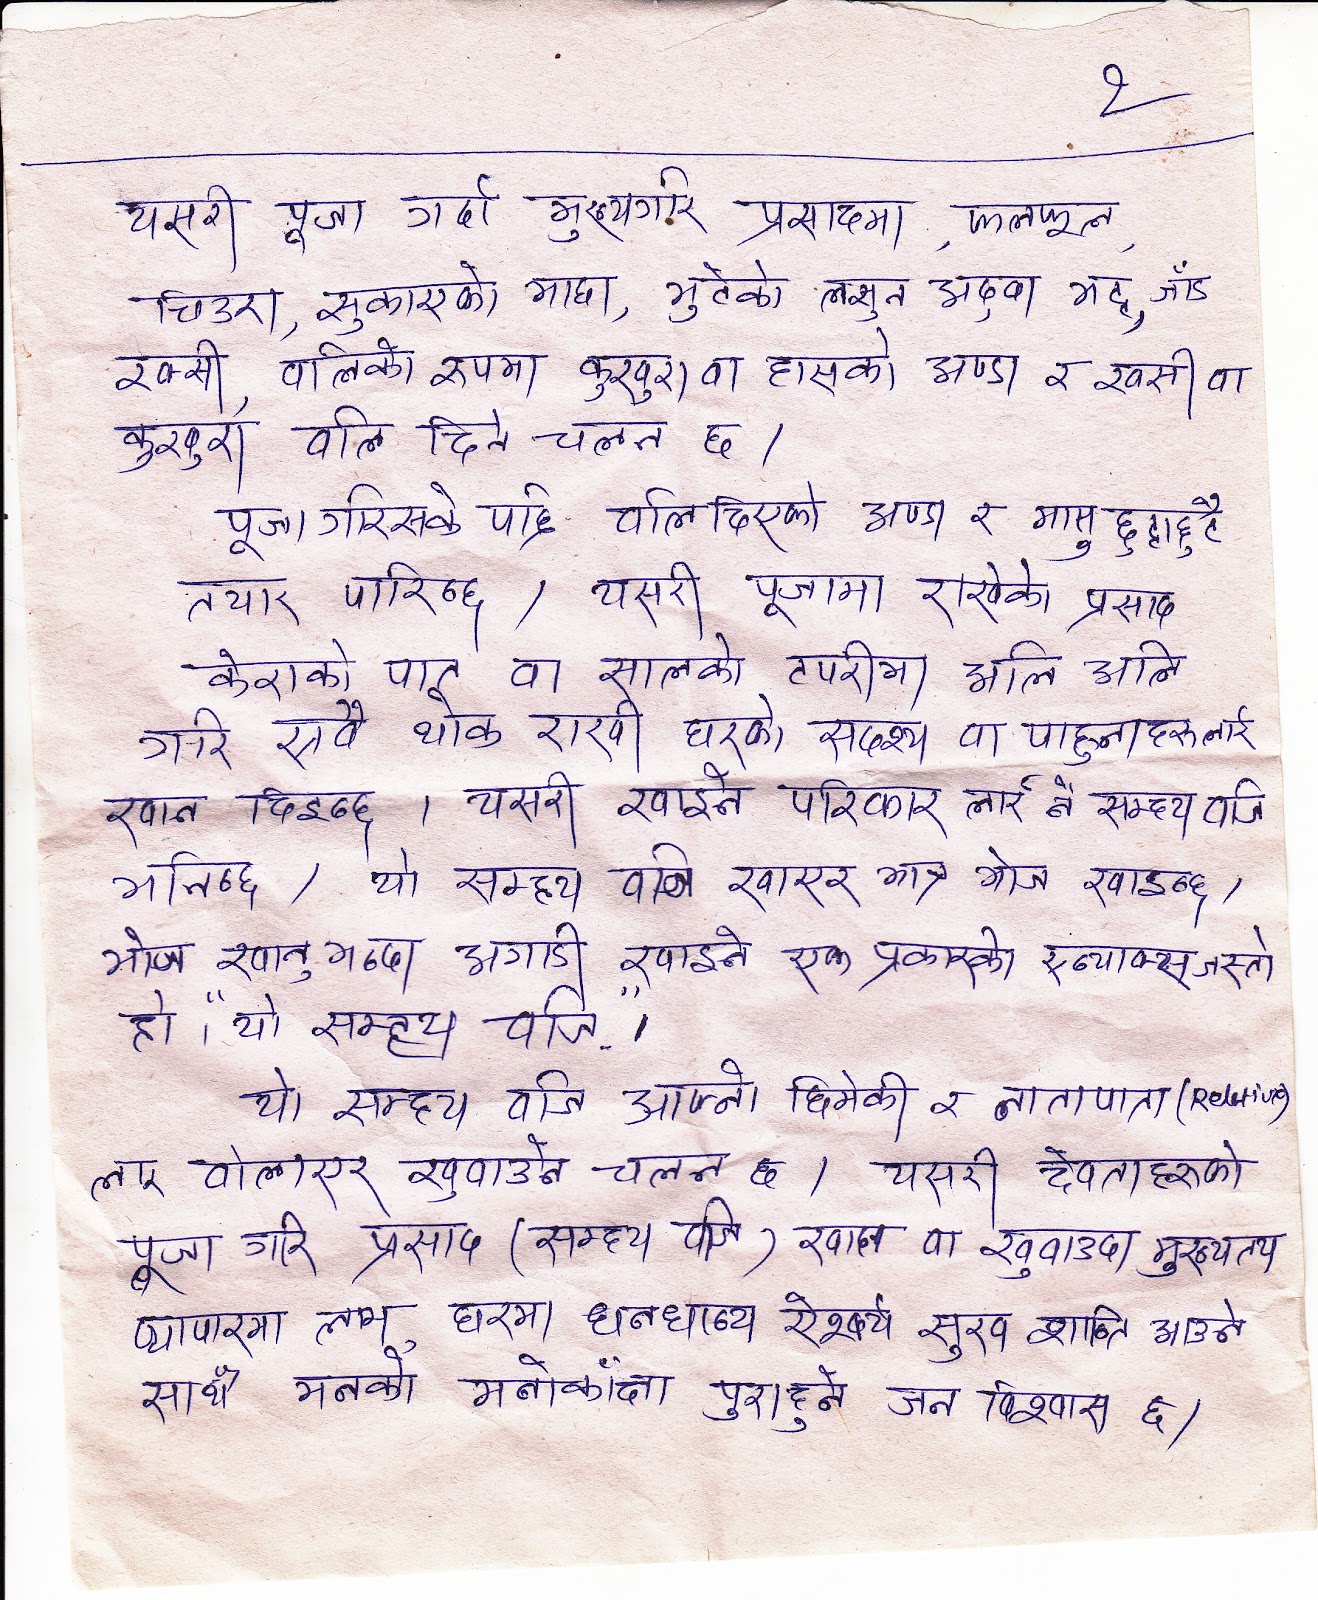 २
यसरी पूजा गर्दा मुख्यगरि प्रसादमा, फलफूल,
चिउरा, सुकाएको माछा, भुटेको लसुन अदुवा भट्ट, जाँड
रक्सी, वलिको रूपमा कुखुरा वा हासको अण्डा र खसी वा
कुखुरा वलि दिने चलन छ ।
पूजा गरिसके पछि वलि दिएको अण्डा र मासु छुट्टाछुटै
तयार पारिन्छ । यसरी पूजामा राखेको प्रसाद
केराको पात वा सालको टपरीमा अलि अलि
गरि सवै थोक राखी घरको सदश्य वा पाहुनाहरूलाई
खान दिइन्छ । यसरी खाइने परिकार लाई नै सम्हय वजि
भनिन्छ । यो सम्हय वजि खाएर मात्र भोज खाइन्छ ।
भोज खानु भन्दा अगाडी खाइने एक प्रकारको स्न्याक्स् जस्तो
हो । "यो सम्हय वजि" ।
यो सम्हय वजि आफ्नो छिमेकी र नातापाता (Relative)
लाई वोलाएर खुवाउने चलन छ । यसरी देवताहरूको
पूजा गरि प्रसाद (सम्हय वजि) खादा वा खुवाउदा मुख्यतय
व्यापारमा लाभ, घरमा धनधान्य ऐश्वर्य सुख शान्ति आउने
साथै मनको मनोकाँक्षा पुराहुने जन विश्वास छ ।